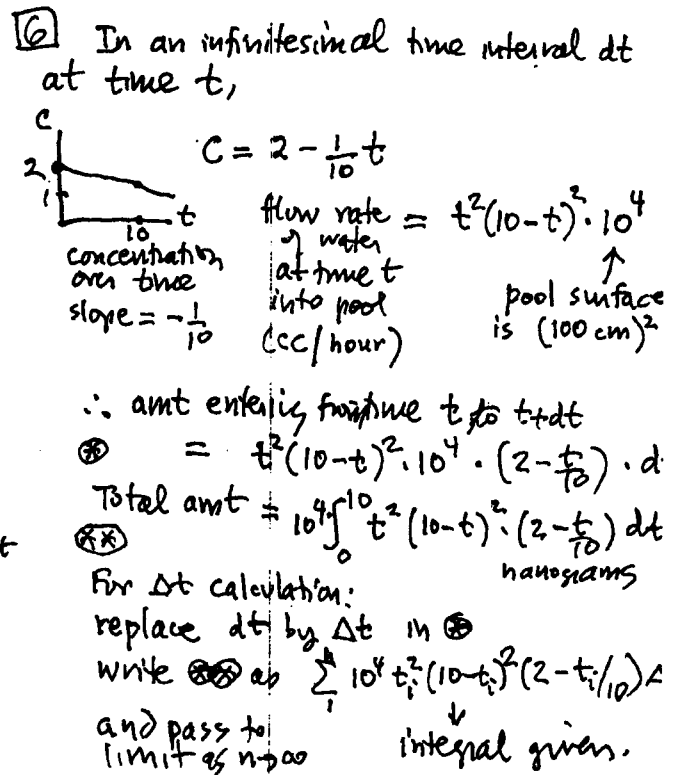 6 In an infinitesimal time interval dt
at time t,
C
2
1
10
t
C = 2 - 1/10 t
concentration
over time
slope = - 1/10
flow rate
of water
at time t
into pool
(cc/hour)
= t²(10-t)²·10⁴
↑
pool surface
is (100 cm)²
∴ amt entering from time t to t+dt
⊛ = t²(10-t)²·10⁴ · (2 - t/10) · d
Total amt = 10⁴·∫₀¹⁰ t² (10-t)²·(2 - t/10) dt
(**)
nanograms
t
For Δt calculation:
replace dt by Δt in ⊛
write (**) as Σ₁ⁿ 10⁴ tᵢ²(10-tᵢ)²(2-tᵢ/10)Δ
and pass to
limit as n→∞
↓
integral given.